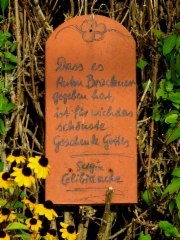 Dass es
Anton Bruckner
gegeben hat,
ist für mich das
schönste
Geschenk Gottes
Sergiu
Celibidache